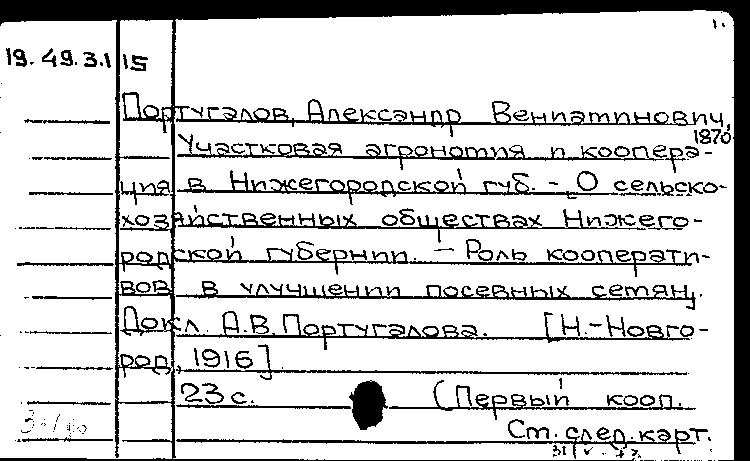 1.
19.49.3.1 15
Португалов, Александр Вениаминович,
1870-
Участковая агрономия и коопера-
ция в Нижегородской губ. - [О сельско-
хозяйственных обществах Нижего-
родской губернии. - Роль кооперати-
вов в улучшении посевных семян].
Докл. А.В. Португалова. [Н.-Новго-
род, 1916]
23 с. (Первый кооп.
См. след. карт.